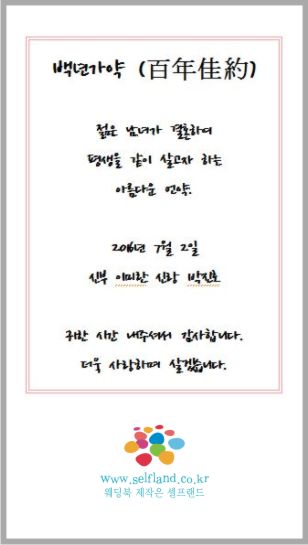 백년가약 (百年佳約)
젊은 남녀가 결혼하여
평생을 같이 살고자 하는
아름다운 언약.
2016년 7월 2일
신부 이미란 신랑 박진호
귀한 시간 내주셔서 감사합니다.
더욱 사랑하며 살겠습니다.
www.selfland.co.kr
웨딩북 제작은 셀프랜드